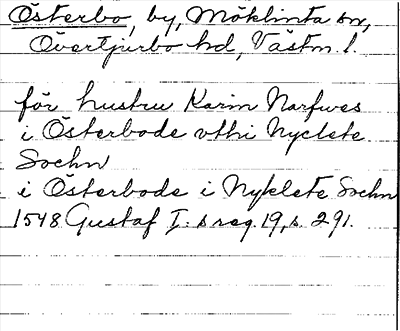 Österbo, by, Möklinta sn,
Övertjurbo hd, Västm. l.
för hustru Karin Narfwes
i Österbode vthi Nyclete
Sochn
i Österbode i Nyklete Sochn
1548 Gustaf I:s reg. 19, s. 291.